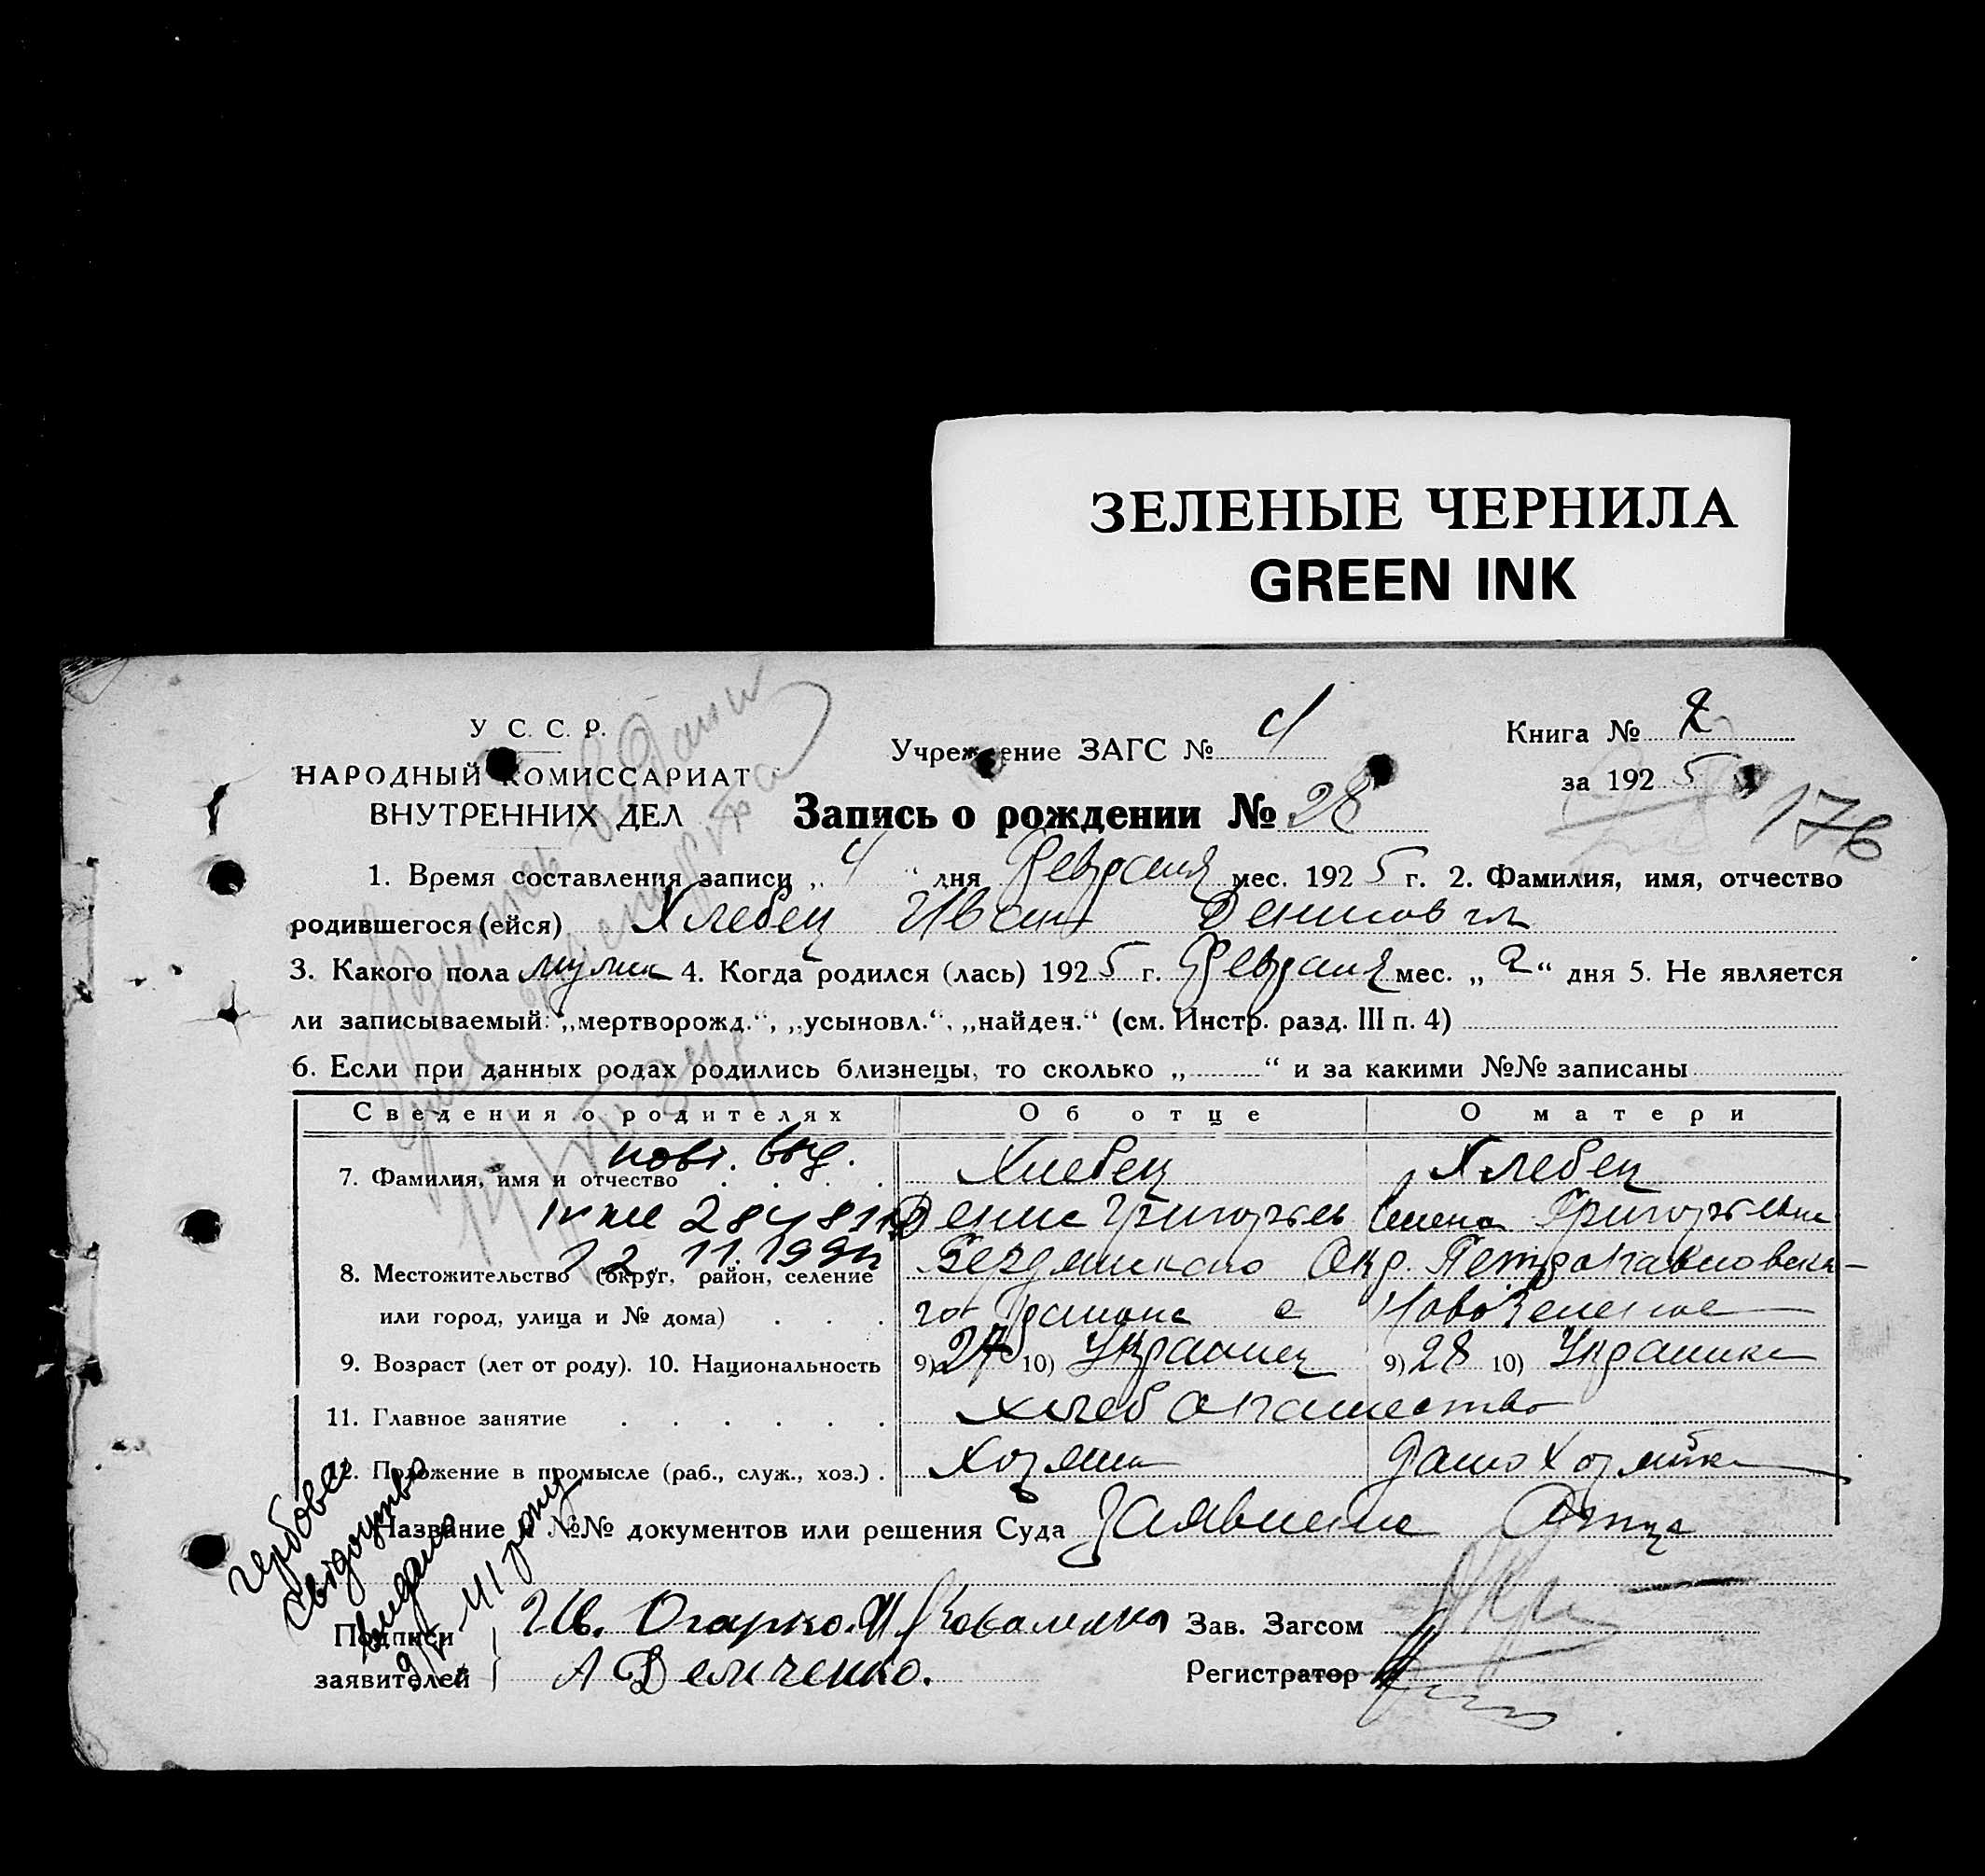 ЗЕЛЕНЫЕ ЧЕРНИЛА
GREEN INK
У С. С. Р.
НАРОДНЫЙ КОМИССАРИАТ
ВНУТРЕННИХ ДЕЛ
Учреждение ЗАГС № 4
Книга № 2
за 1925
176
Запись о рождении № 28
1. Время составления записи „ 4 “ дня Февраля мес. 1925 г. 2. Фамилия, имя, отчество
родившегося (ейся) Хлебец Иван Денисов
3. Какого пола мужск 4. Когда родился (лась) 1925 г. Февраля мес. „ 2 “ дня 5. Не является
ли записываемый: „мертворожд.“, „усыновл.“, „найден.“ (см. Инстр. разд. III п. 4)
6. Если при данных родах родились близнецы, то сколько „ “ и за какими №№ записаны
Сведения о родителях Об отце О матери
повт. выд.
7. Фамилия, имя и отчество Хлебец Хлебец
Денис Григорьев Елена Григорьевна
12.11.1992
8. Местожительство (округ, район, селение Бердянского Окр. Петропавловска-
или город, улица и № дома) го района с Новозеленое
9. Возраст (лет от роду). 10. Национальность 9) 27 10) Украинец 9) 28 10) Украинка
11. Главное занятие хлебопашество
12. Положение в промысле (раб., служ., хоз.) Хозяин домохозяйка
Название и №№ документов или решения Суда Заявление Отца
гербове
свідоцтво
видано
Подписи
заявителей
Ив. Огарко. И Коваленко
А Величенко.
Зав. Загсом
Регистратор